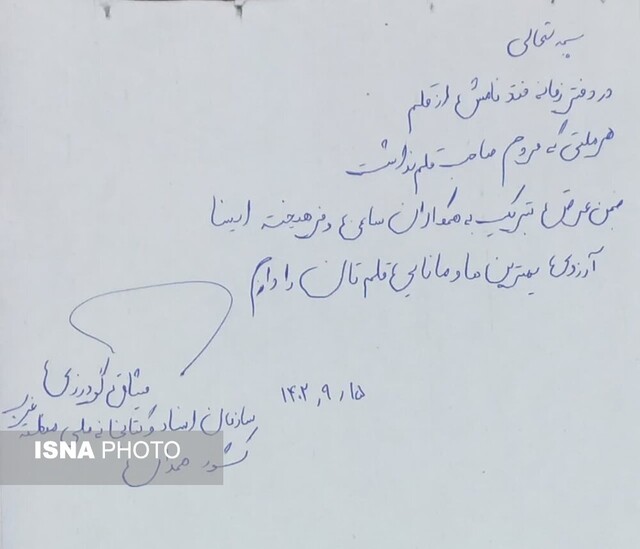 بسمه تعالی
در دفتر زمانه فتد نامش از قلم
هر ملتی که مردم صاحب قلم نداشت
ضمن عرض تبریک به همکاران ساعی و فرهیخته ایسنا
آرزوی بهترین ها و مانایی قلم تان را دارم
۱۴۰۲٫۹٫۱۵
میثاق گودرزی
سازمان اسناد و کتابخانه ملی منطقه غرب
کشور همدان
ISNA PHOTO